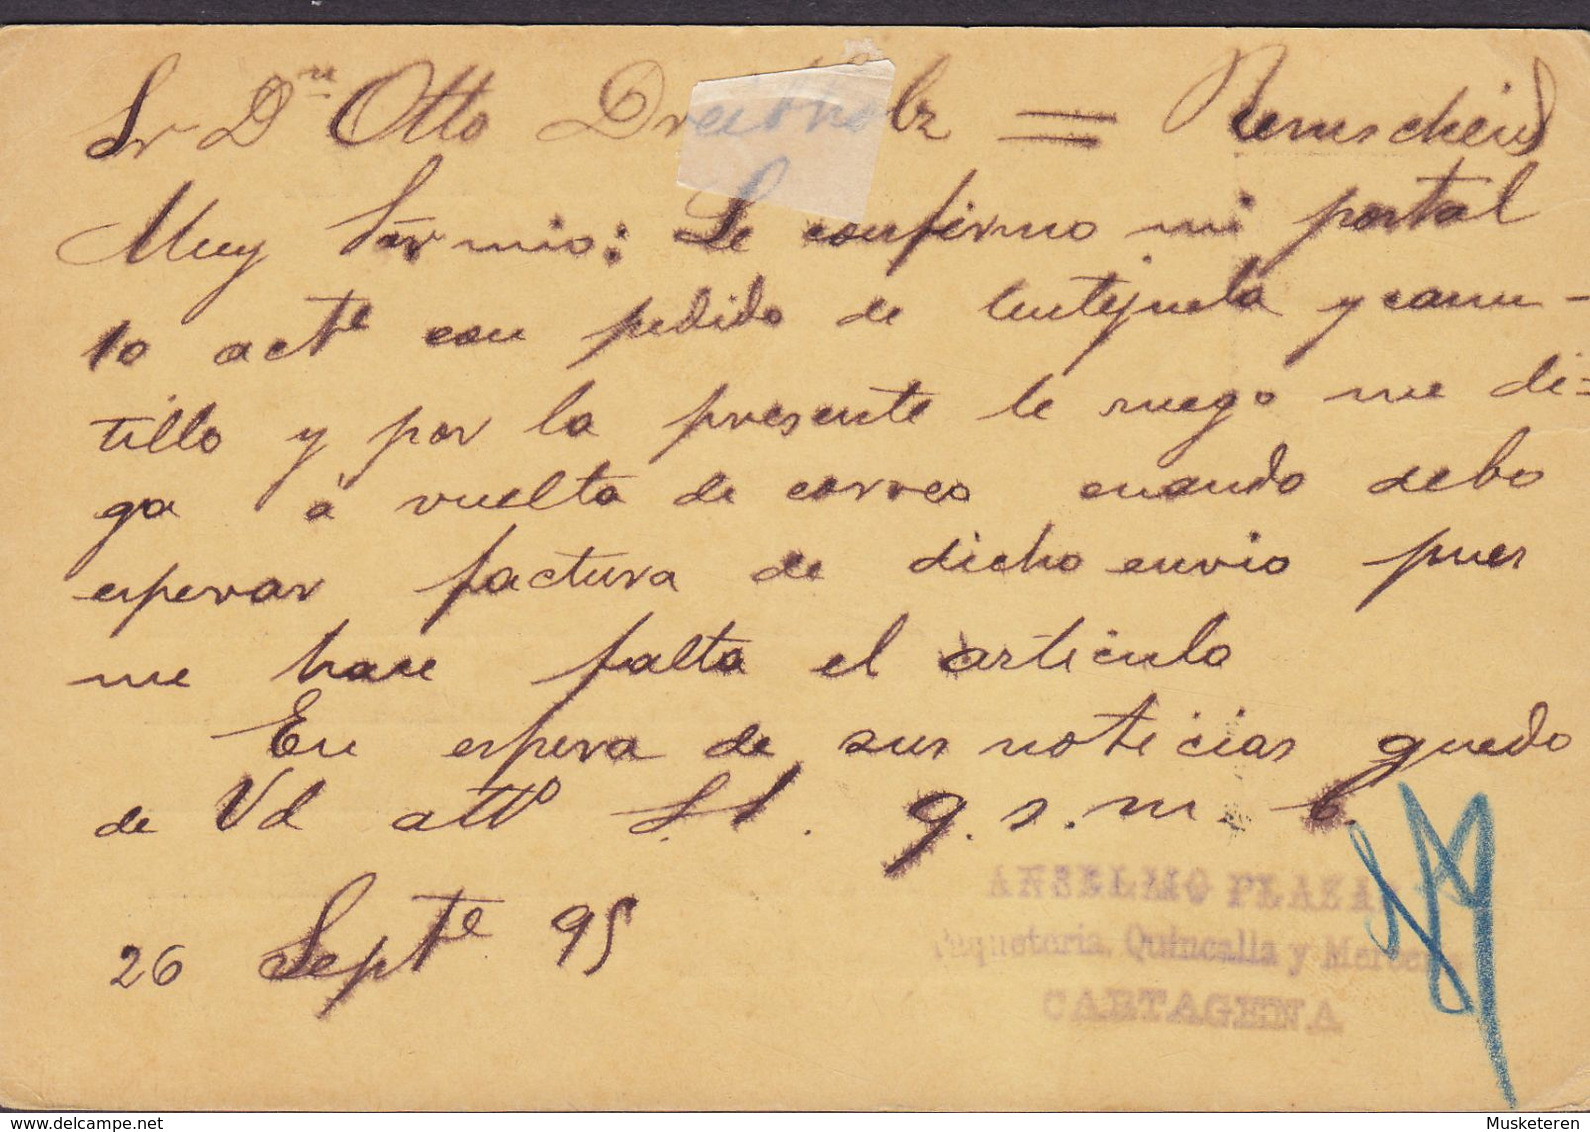 Sr Dn Otto Dreibholz = Remscheid
Muy Sor mio: Le confirmo mi postal
10 acte con pedido de lentejuela y canu-
tillo y por la presente le ruego me di=
ga á vuelta de correo cuando debo
esperar factura de dicho envio pues
me hace falta el articulo
En espera de sus noticias quedo
de Vd atto S.S. q.s.m.b.
26 Septe 95
ANSELMO PLAZA
Paqueteria, Quincalla y Merceria
CARTAGENA
Musketeren